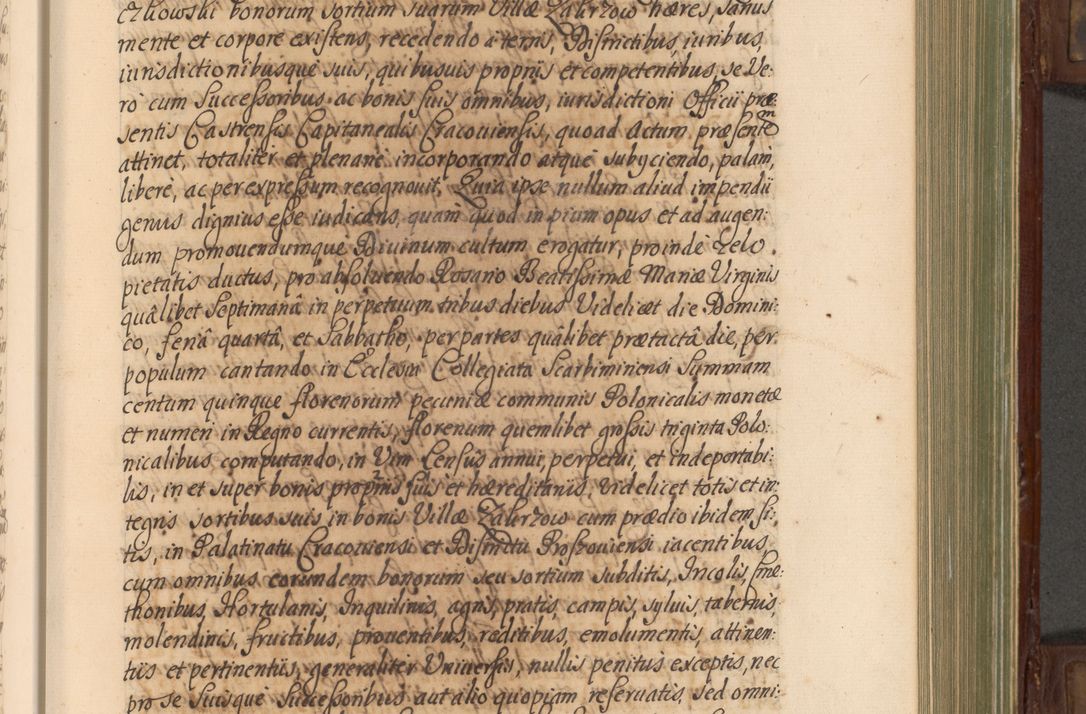 czkowski bonorum sortium suarum Villæ Zakrzow hæres, sanus
mente et corpore existens, recedendo à terris, Districtibus, iuribus,
iurisdictionibusque suis, quibusuis proprijs et competentibus, se Ve:
rò cum Successoribus ac bonis suis omnibus, iurisdictioni Officij præ:
sentis Castrensis Capitanealis Cracouiensis, quoad Actum præsentem
attinet, totaliter et plenarie incorporando atque subyciendo, palam,
liberè, ac per expressum recognouit, Quia ipse nullum aliud impendij
genus dignius esse iudicans, quam quod in pium opus et ad augen:
dum promouendumque Diuinum cultum erogatur, proindè zelo
pietatis ductus, pro absoluendo Rosario Beatissimæ Mariæ Virginis
quâlibet Septimanâ in perpetuum tribus diebus Videlicet die Domini:
co, feriâ quartâ, et Sabbatho, per partes quâlibet prætactâ die, per
populum cantando in Ecclesia Collegiata Scarbimiriensi Summam
centum quinque florenorum pecuniæ communis Polonicalis monetæ
et numeri in Regno currentis, florenum quemlibet grossis triginta Polo:
nicalibus computando, in Vim Censûs annui, perpetui, et indeportabi:
lis, in et super bonis proprijs suis et hæreditarijs, videlicet totis et in:
tegris sortibus suis, in bonis Villæ Zakrzow cum prædio ibidem si:
tis, in Palatinatu Cracouiensi et Districtu Proszouiensi iacentibus,
cum omnibus eorundem bonorum seu sortium subditis, Incolis, Cme:
thonibus, Hortulanis, Inquilinis, agris, pratis, campis, syluis, tabernis,
molendinis, fructibus, prouentibus, reditibus, emolumentis, attinen:
tijs et pertinentijs, generaliter Vniuersis, nullis penitus exceptis, nec
pro se Suisque Successoribus aut alio quopiam reseruatis, sed omni: